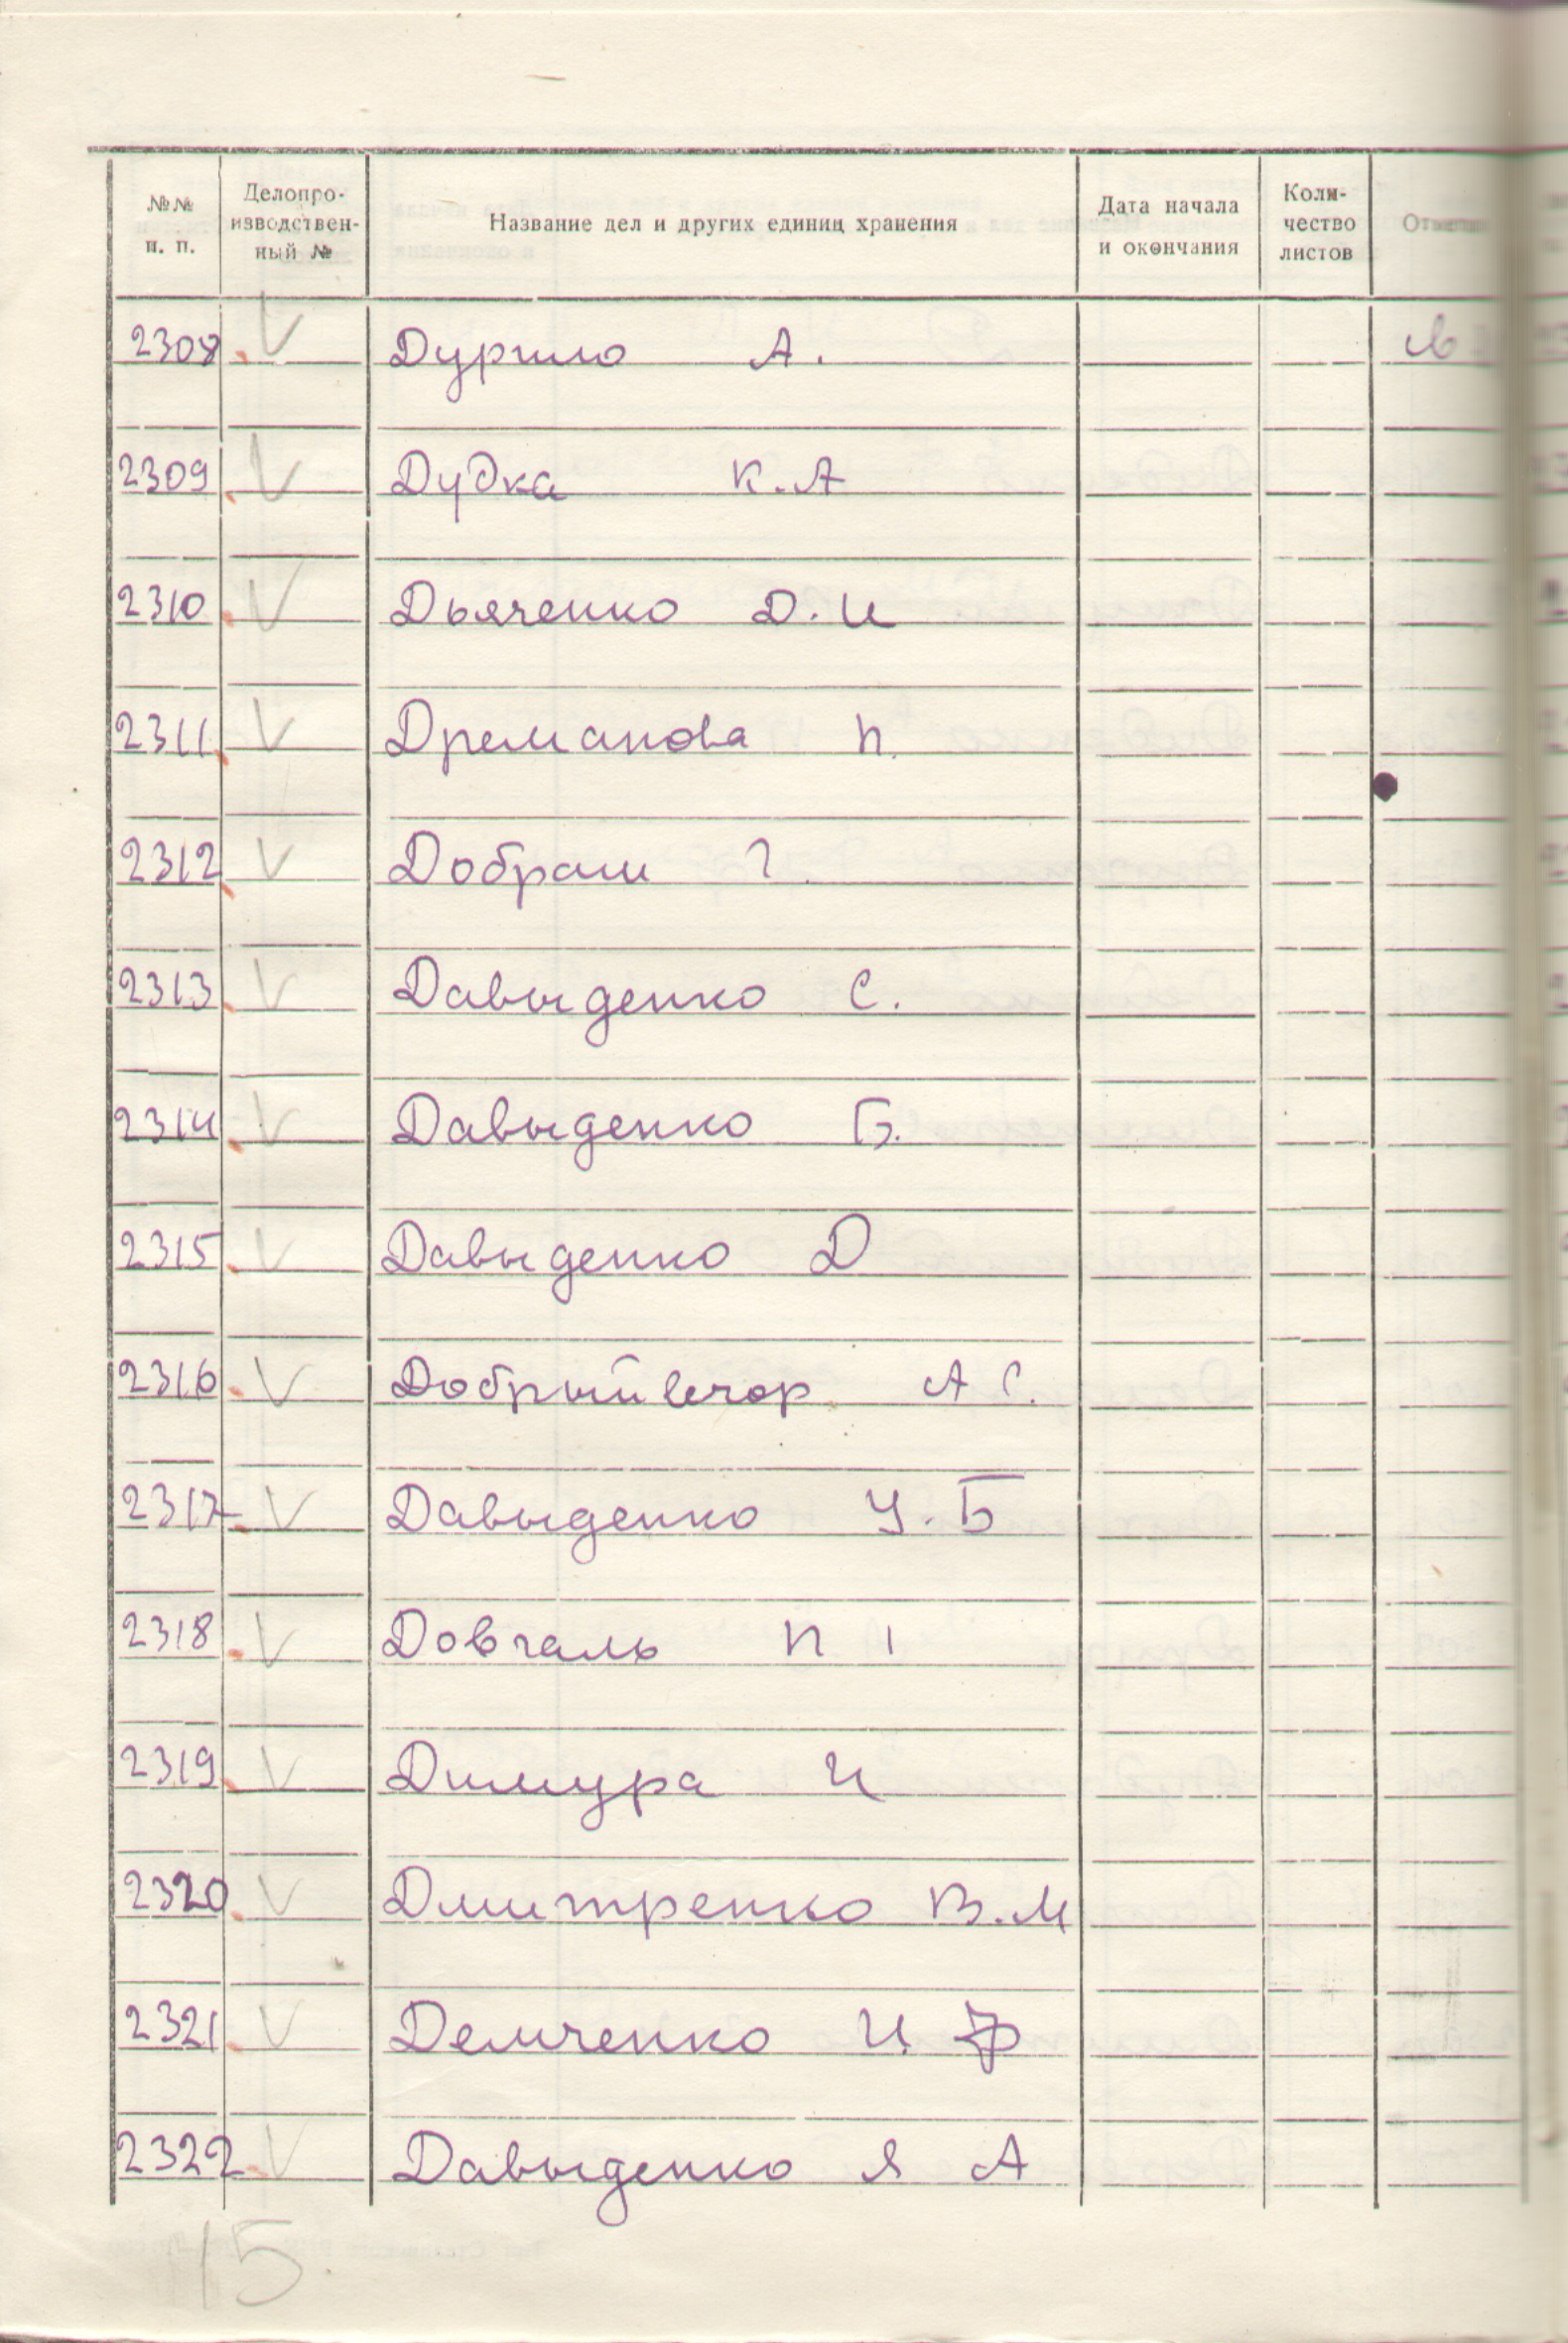 №№ п. п. Делопроизводственный № Название дел и других единиц хранения Дата начала и окончания Количество листов
2308 V Дургило А.
2309 V Дудка К.А
2310 V Дьяченко Д.И
2311 V Дреманова П.
2312 V Добраш Г.
2313 V Давыденко С.
2314 V Давыденко Б.
2315 V Давыденко Д
2316 V Добрыйвечор А С.
2317 V Давыденко У.Б
2318 V Довгаль П
2319 V Димура И
2320 V Дмитренко В.М
2321 V Демченко И Ф
2322 V Давыденко Я А
15